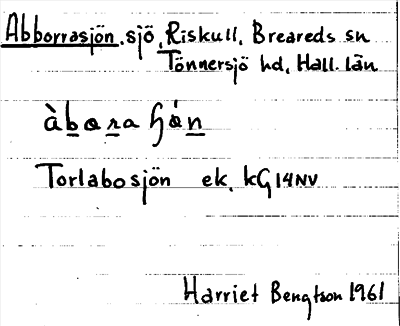 Abborrasjön, sjö, Riskull, Breareds sn
Tönnersjö hd, Hall. län
àbora ɧǿn
Torlabosjön ek. kG 14NV
Harriet Bengtson 1961